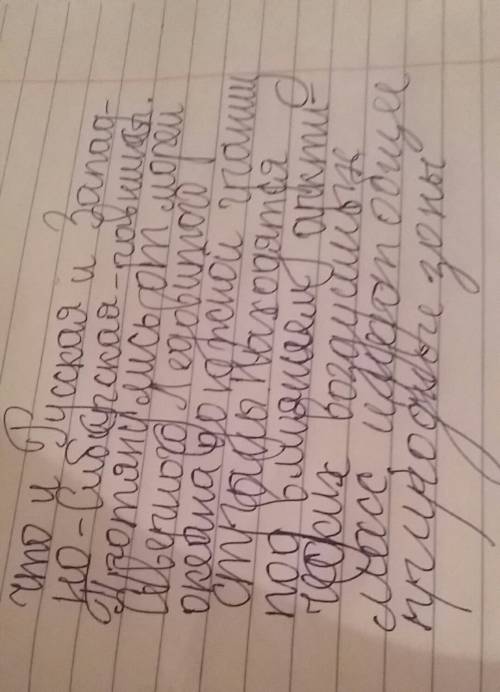 что у Русская и Запад-
но-Сибирская-равнины.
Протянулись от морей
Северного Ледовитого
океана до южной границы
страны Находятся
под влиянием аркти-
ческих воздушных
масс имеют общие
природные зоны